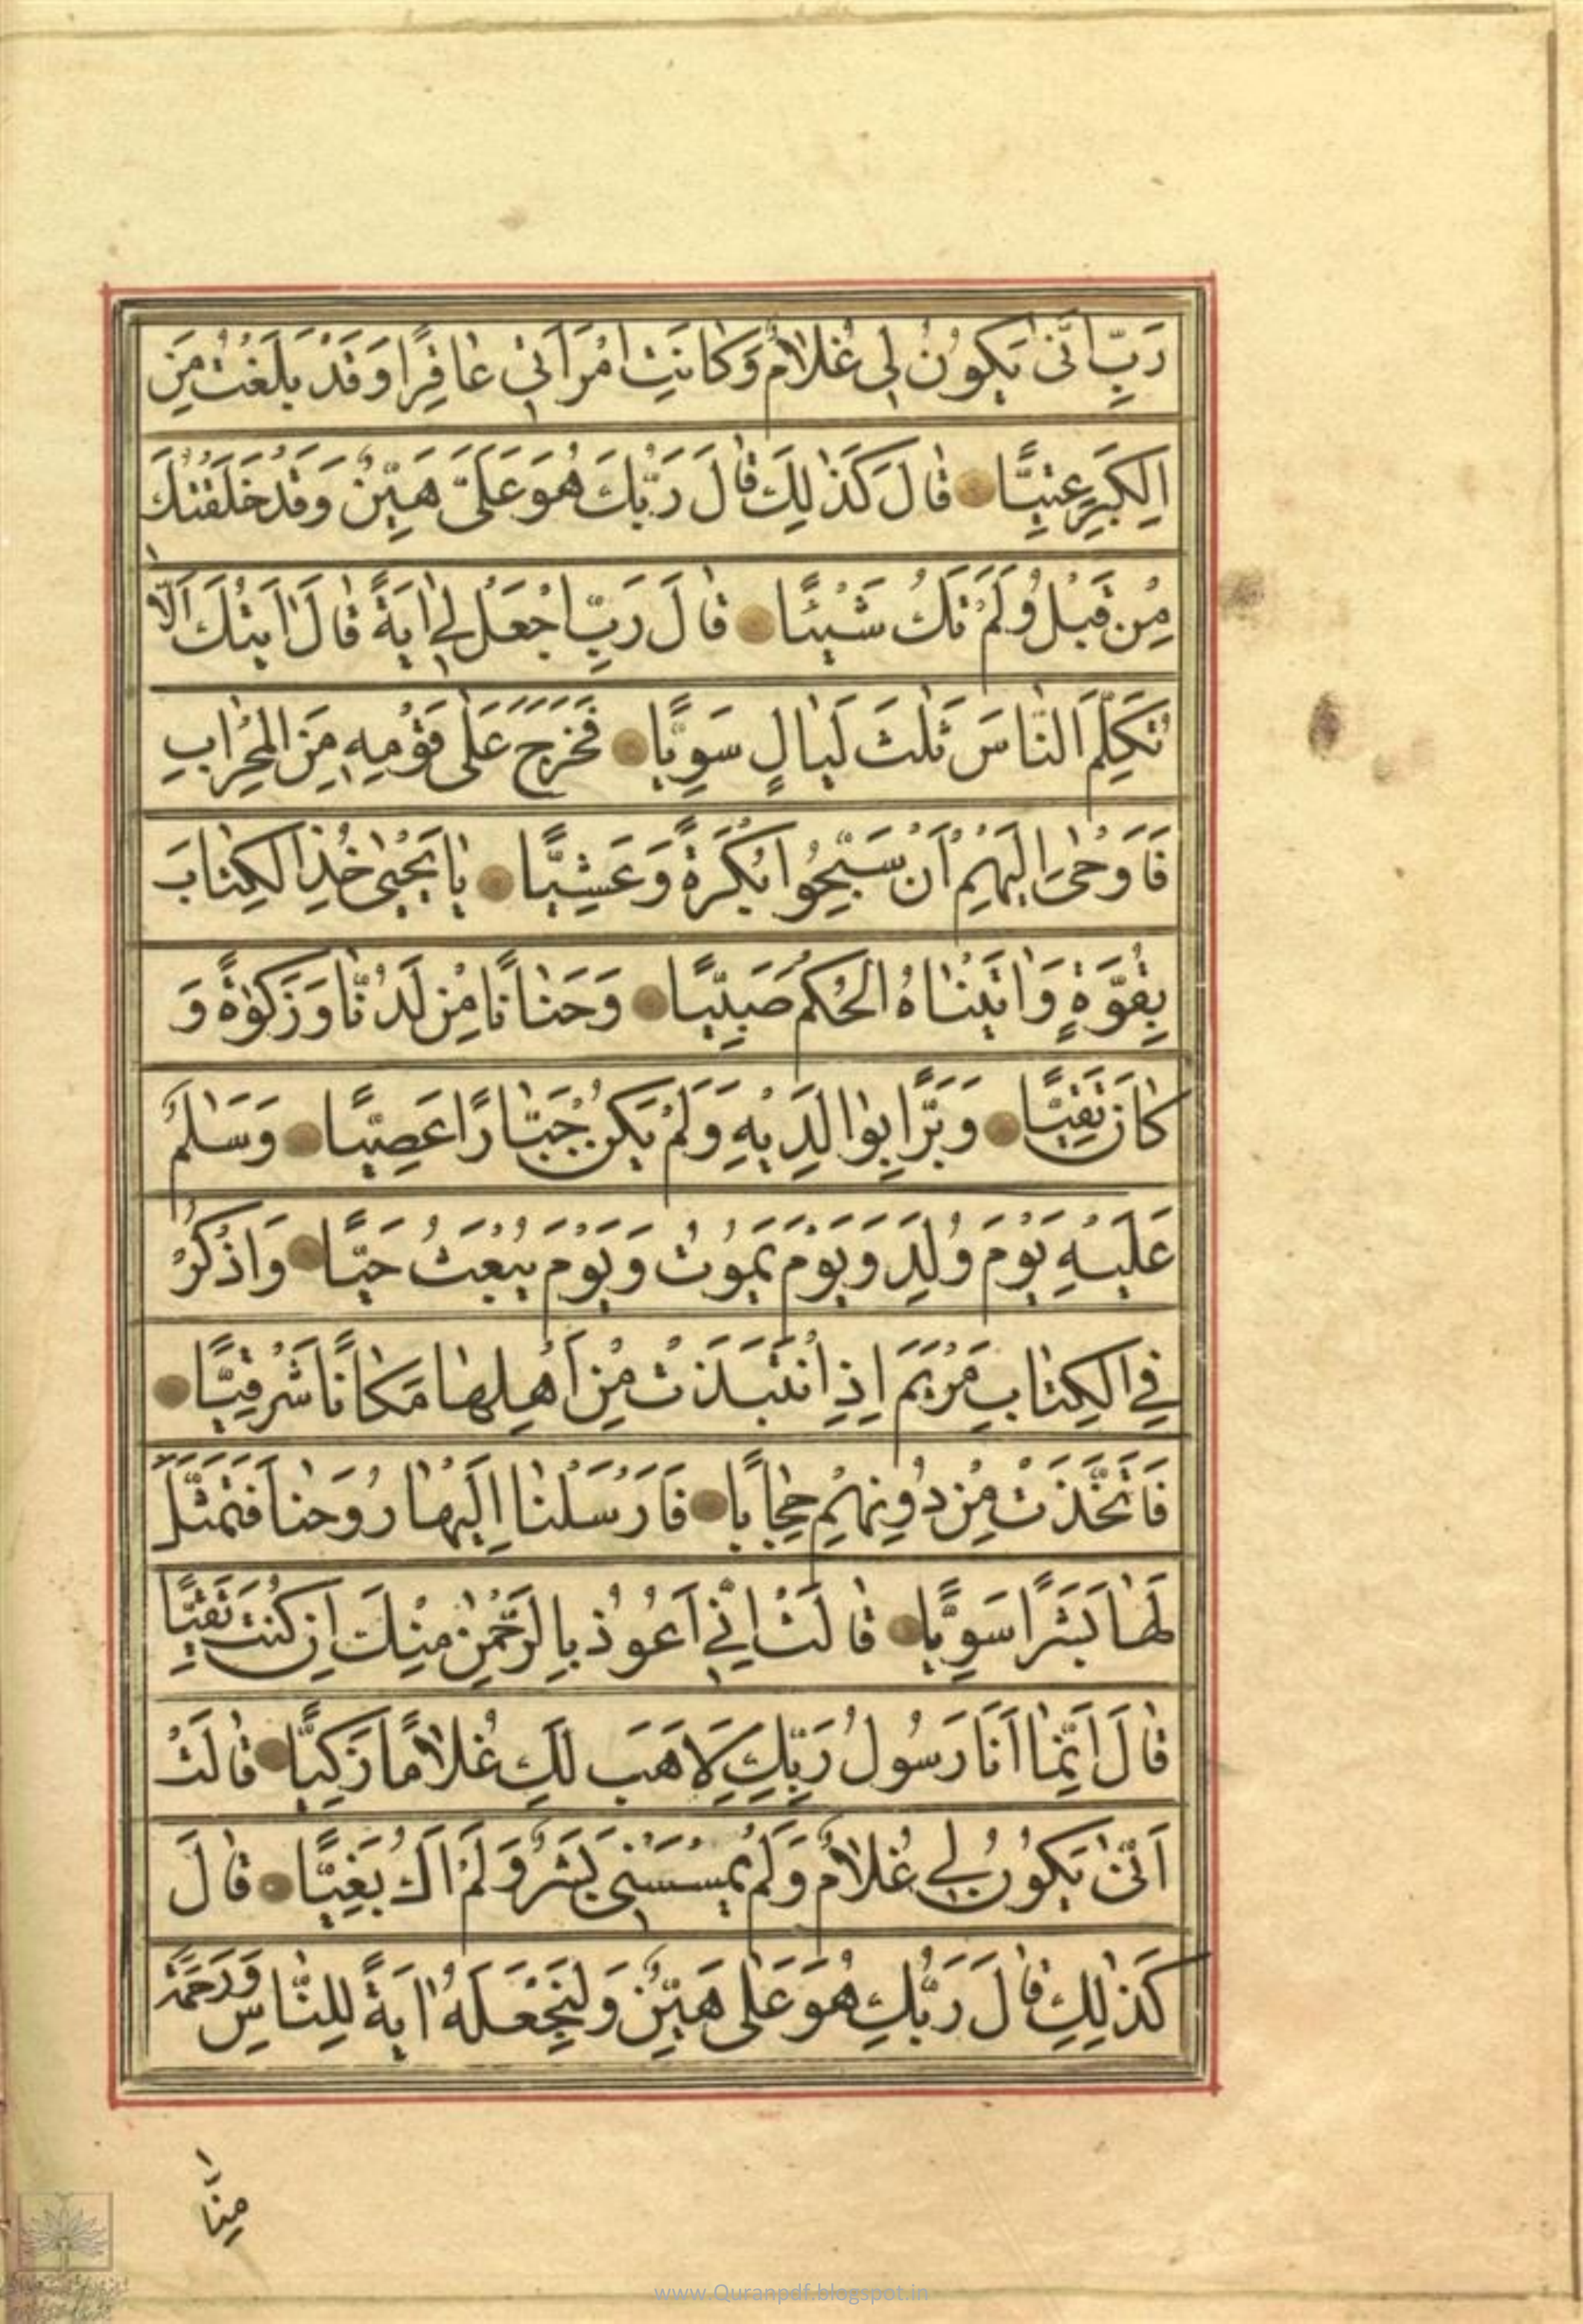 رَبِّ اَنّٰى يَكُوْنُ لِي غُلَامٌ وَكَانَتِ امْرَاَتِي عَاقِرًا وَقَدْ بَلَغْتُ مِنَ
الْكِبَرِ عِتِيًّا قَالَ كَذٰلِكَ قَالَ رَبُّكَ هُوَ عَلَىَّ هَيِّنٌ وَقَدْ خَلَقْتُكَ
مِنْ قَبْلُ وَلَمْ تَكُ شَيْئًا قَالَ رَبِّ اجْعَلْ لِي اٰيَةً قَالَ اٰيَتُكَ اَلَّا
تُكَلِّمَ النَّاسَ ثَلٰثَ لَيَالٍ سَوِيًّا فَخَرَجَ عَلٰى قَوْمِهِ مِنَ الْمِحْرَابِ
فَاَوْحٰى اِلَيْهِمْ اَنْ سَبِّحُوا بُكْرَةً وَعَشِيًّا يَا يَحْيٰى خُذِ الْكِتَابَ
بِقُوَّةٍ وَاٰتَيْنَاهُ الْحُكْمَ صَبِيًّا وَحَنَانًا مِنْ لَدُنَّا وَزَكٰوةً وَ
كَانَ تَقِيًّا وَبَرًّا بِوَالِدَيْهِ وَلَمْ يَكُنْ جَبَّارًا عَصِيًّا وَسَلٰمٌ
عَلَيْهِ يَوْمَ وُلِدَ وَيَوْمَ يَمُوتُ وَيَوْمَ يُبْعَثُ حَيًّا وَاذْكُرْ
فِي الْكِتَابِ مَرْيَمَ اِذِ انْتَبَذَتْ مِنْ اَهْلِهَا مَكَانًا شَرْقِيًّا
فَاتَّخَذَتْ مِنْ دُونِهِمْ حِجَابًا فَاَرْسَلْنَا اِلَيْهَا رُوحَنَا فَتَمَثَّلَ
لَهَا بَشَرًا سَوِيًّا قَالَتْ اِنِّي اَعُوذُ بِالرَّحْمٰنِ مِنْكَ اِنْ كُنْتَ تَقِيًّا
قَالَ اِنَّمَا اَنَا رَسُولُ رَبِّكِ لِاَهَبَ لَكِ غُلَامًا زَكِيًّا قَالَتْ
اَنّٰى يَكُوْنُ لِي غُلَامٌ وَلَمْ يَمْسَسْنِي بَشَرٌ وَلَمْ اَكُ بَغِيًّا قَالَ
كَذٰلِكِ قَالَ رَبُّكِ هُوَ عَلَى هَيِّنٌ وَلِنَجْعَلَهُ اٰيَةً لِلنَّاسِ وَرَحْمَةً
مِنَّا
www.Quranpdf.blogspot.in